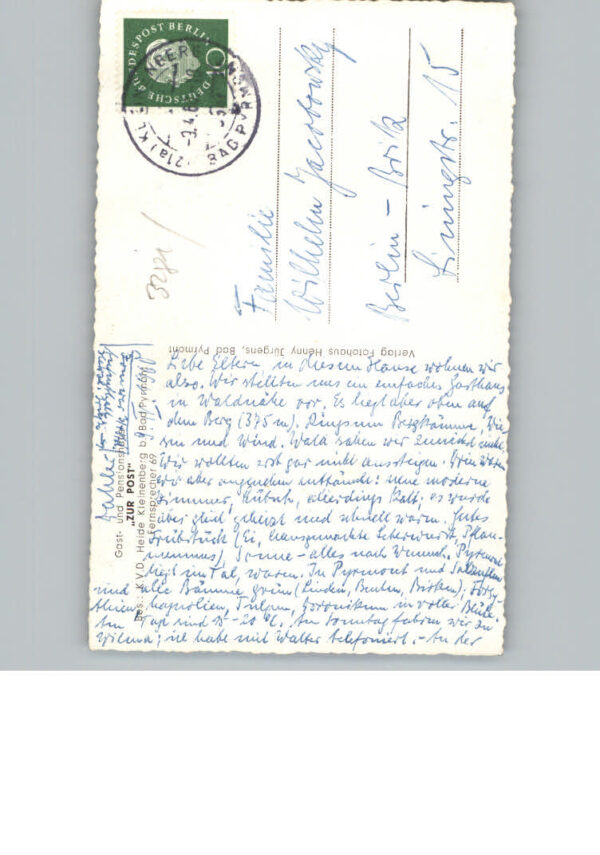 DEUTSCHE BUNDESPOST BERLIN
10
(21a) KLEINENBERG
BAD PYRMONT
Familie
Wilhelm Jacobowsky
Berlin – Britz
15
Verlag Fotohaus Henny Jürgens, Bad Pyrmont
Gast- und Pensionshaus
„ZUR POST"
Bes.: K.V.D. Heide Kleinenberg b. Bad Pyrmont
Fernsprecher 69
Liebe Eltern, in diesem Hause wohnen wir
also. Wir stellten uns ein einfaches Gasthaus
in Waldnähe vor. Es liegt aber oben auf
dem Berg (375 m). Ringsum Bergkämme, Wie-
sen und Wind. Wald sahen wir zunächst nicht.
Wir wollten erst gar nicht aussteigen. Drin waren
wir aber angenehm enttäuscht: neue moderne
Zimmer, hübsch, allerdings kalt; es wurde
aber gleich geheizt und schnell warm. Gutes
Frühstück (Ei, hausgemachte Leberwurst, Pflau-
menmus), Sonne – alles nach Wunsch. Pyrmont
liegt im Tal, waren. In Pyrmont und
sind alle Bäume grün (Linden, Buchen, Birken), Forsy-
thien, Magnolien, Tulpen, in voller Blüte.
Am Tag sind 15 – 20 °C. Am Sonntag fahren wir zu
Wilma; ich habe mit Walter telefoniert. – An der